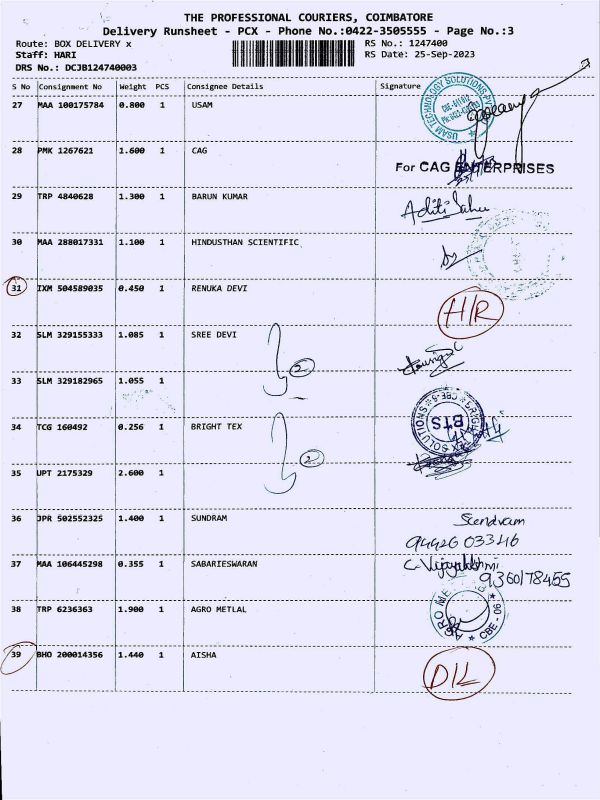 THE PROFESSIONAL COURIERS, COIMBATORE
Delivery Runsheet - PCX - Phone No.:0422-3505555 - Page No.:3
Route: BOX DELIVERY x RS No.: 1247400
Staff: HARI RS Date: 25-Sep-2023
DRS No.: DCJB124740003
S No Consignment No Weight PCS Consignee Details Signature
27 MAA 100175784 0.800 1 USAM
USAM TECHNOLOGY SOLUTIONS PVT
28 PMK 1267621 1.600 1 CAG
For CAG ENTERPRISES
29 TRP 4840628 1.300 1 BARUN KUMAR Aditi Sahu
30 MAA 288017331 1.100 1 HINDUSTHAN SCIENTIFIC
31 IXM 504589035 0.450 1 RENUKA DEVI H/R
32 SLM 329155333 1.085 1 SREE DEVI
2
33 SLM 329182965 1.055 1
34 TCG 160492 0.256 1 BRIGHT TEX BTS
2
35 UPT 2175329 2.600 1
36 JPR 502552325 1.400 1 SUNDRAM Sundram
94426 03346
37 MAA 106445298 0.355 1 SABARIESWARAN C. Vijayalakshmi
9360178455
38 TRP 6236363 1.900 1 AGRO METLAL AGRO ME CBE - 06
39 BHO 200014356 1.440 1 AISHA D/L